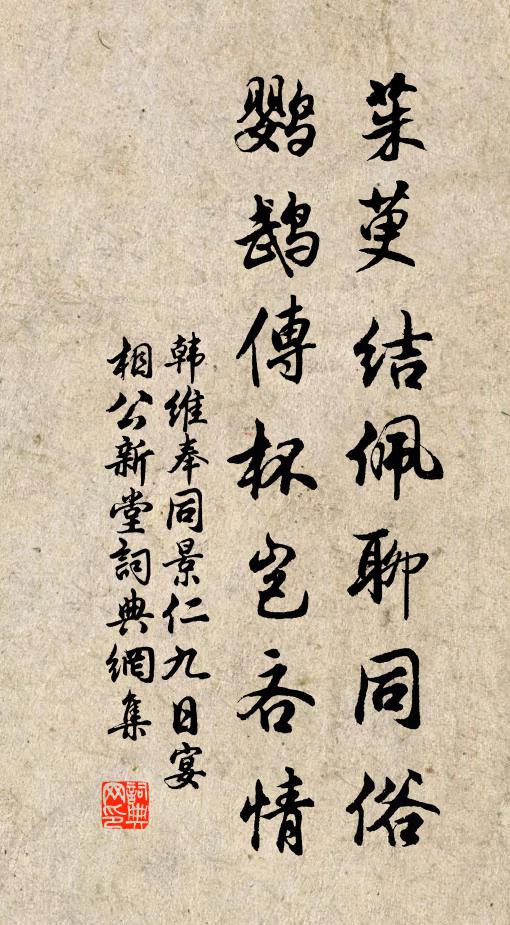 茱萸結佩聊同俗
鸚鵡傳杯豈吝情
韩維奉同景仁九日宴
相公新堂詞典網集
詞典网印